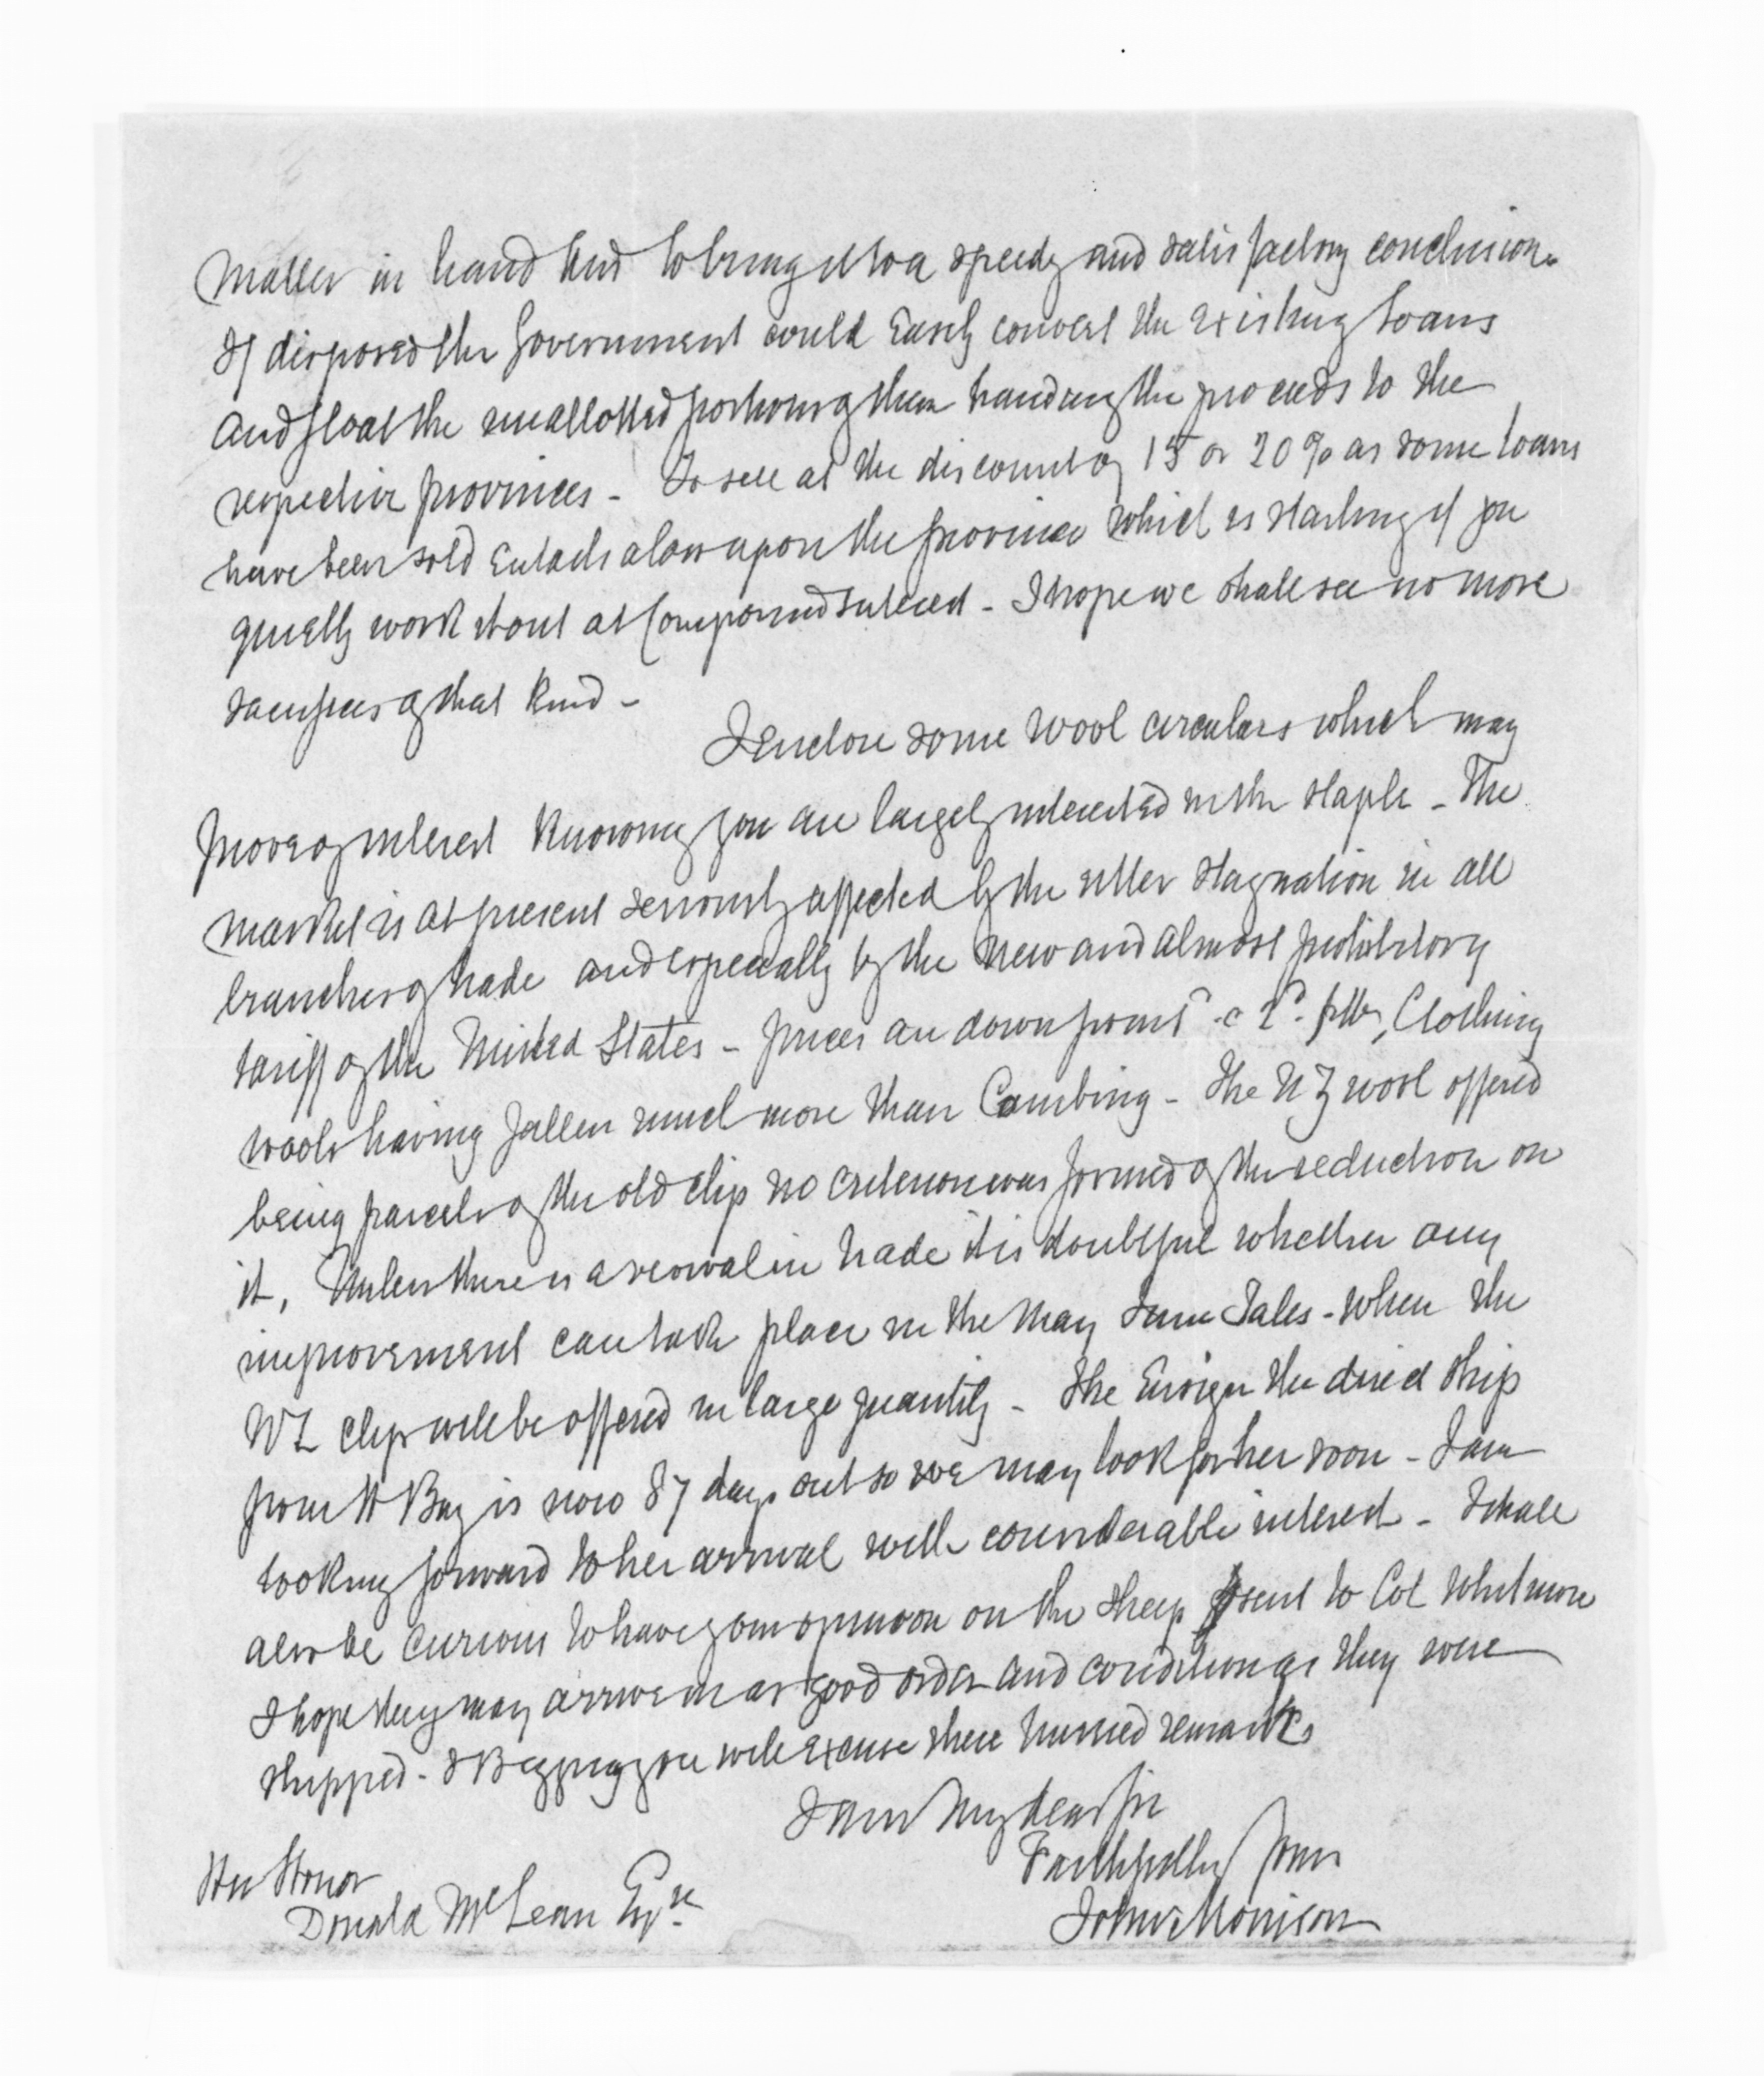 matter in hand and to bring it to a speedy and satisfactory conclusion.
If disposed the Government could easily convert the existing Loans
and float the unallotted portions of them handing the proceeds to the
respective provinces - To sell at the discount of 15 or 20 % as some loans
have been sold entails a loss upon the province which is startling if you
quietly work it out at Compound Interest - I hope we shall see no more
sacrifices of that kind -
I enclose some wool circulars which may
prove of interest knowing you are largely interested in the staple - The
market is at present seriously affected by the utter stagnation in all
branches of trade and especially by the new and almost prohibitory
tariff of the United States - prices are down from 1d @ 2d. p lb, Clothing
wools having fallen much more than Combing - The N Z wool offered
being parcels of the old clip no criterion was formed of the reduction on
it, Unless there is a revival in trade it is doubtful whether any
improvement can take place in the May June Sales - when the
N Z clips will be offered in large quantity - The Ensign the direct ship
from H Bay is now 87 days out so we may look for her soon - I am
looking forward to her arrival with considerable interest - I shall
also be curious to have your opinion on the sheep I sent to Col Whitmore
I hope they may arrive in as good order and condition as they were
shipped - & Begging you will excuse these hurried remarks
I am My dear Sir
Faithfully Yours
John Morrison
His Honor
Donald McLean Esqre.